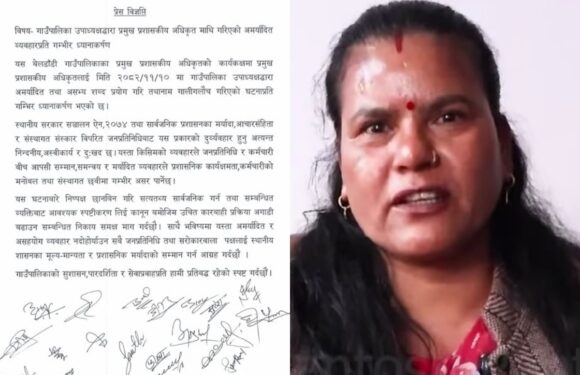 प्रेस विज्ञप्ति
विषय- गाउँपालिका उपाध्यक्षद्वारा प्रमुख प्रशासकीय अधिकृत माथि गरिएको अमर्यादित
व्यवहारप्रति गम्भीर ध्यानाकर्षण
यस बेलडाँडी गाउँपालिकाका प्रमुख प्रशासकीय अधिकृतको कार्यकक्षमा प्रमुख
प्रशासकीय अधिकृतलाई मिति २०८२/११/१० मा गाउँपालिका उपाध्यक्षद्वारा
अमर्यादित तथा असभ्य शब्द प्रयोग गरि तथानाम गालीगलौंच गरिएको घटनाप्रति
गम्भिर ध्यानाकर्षण भएको छ।
स्थानीय सरकार सञ्चालन ऐन,२०७४ तथा सार्वजनिक प्रशासनका मर्यादा,आचारसंहिता
र संस्थागत संस्कार विपरित जनप्रतिनिधिबाट यस प्रकारको दुर्व्यवहार हुनु अत्यन्त
निन्दनीय,अस्वीकार्य र दुःखद छ। यस्ता किसिमको व्यवहारले जनप्रतिनिधि र कर्मचारी
बीच आपसी सम्मान,समन्वय र मर्यादित व्यवहारले प्रशासनिक कार्यक्षमता,कर्मचारीको
मनोबल तथा संस्थागत छवीमा गम्भीर असर पार्नेछ।
यस घटनाबारे निष्पक्ष छानविन गरि सत्यतथ्य सार्वजनिक गर्न तथा सम्बन्धित
व्यक्तिबाट आवश्यक स्पष्टीकरण लिई कानून बमोजिम उचित कारवाही प्रक्रिया अगाडी
बढाउन सम्बन्धित निकाय समक्ष माग गर्दछौं। साथै भविष्यमा यस्ता अमर्यादित र
असहयोग व्यवहार नदोहोर्याउन सबै जनप्रतिनिधि तथा सरोकारवाला पक्षलाई स्थानीय
शासनका मूल्य-मान्यता र प्रशासनिक मर्यादाको सम्मान गर्न आग्रह गर्दछौं।
गाउँपालिकाको सुशासन,पारदर्शिता र सेवाप्रवाहप्रति हामी प्रतिबद्ध रहेको स्पष्ट गर्दछौं।